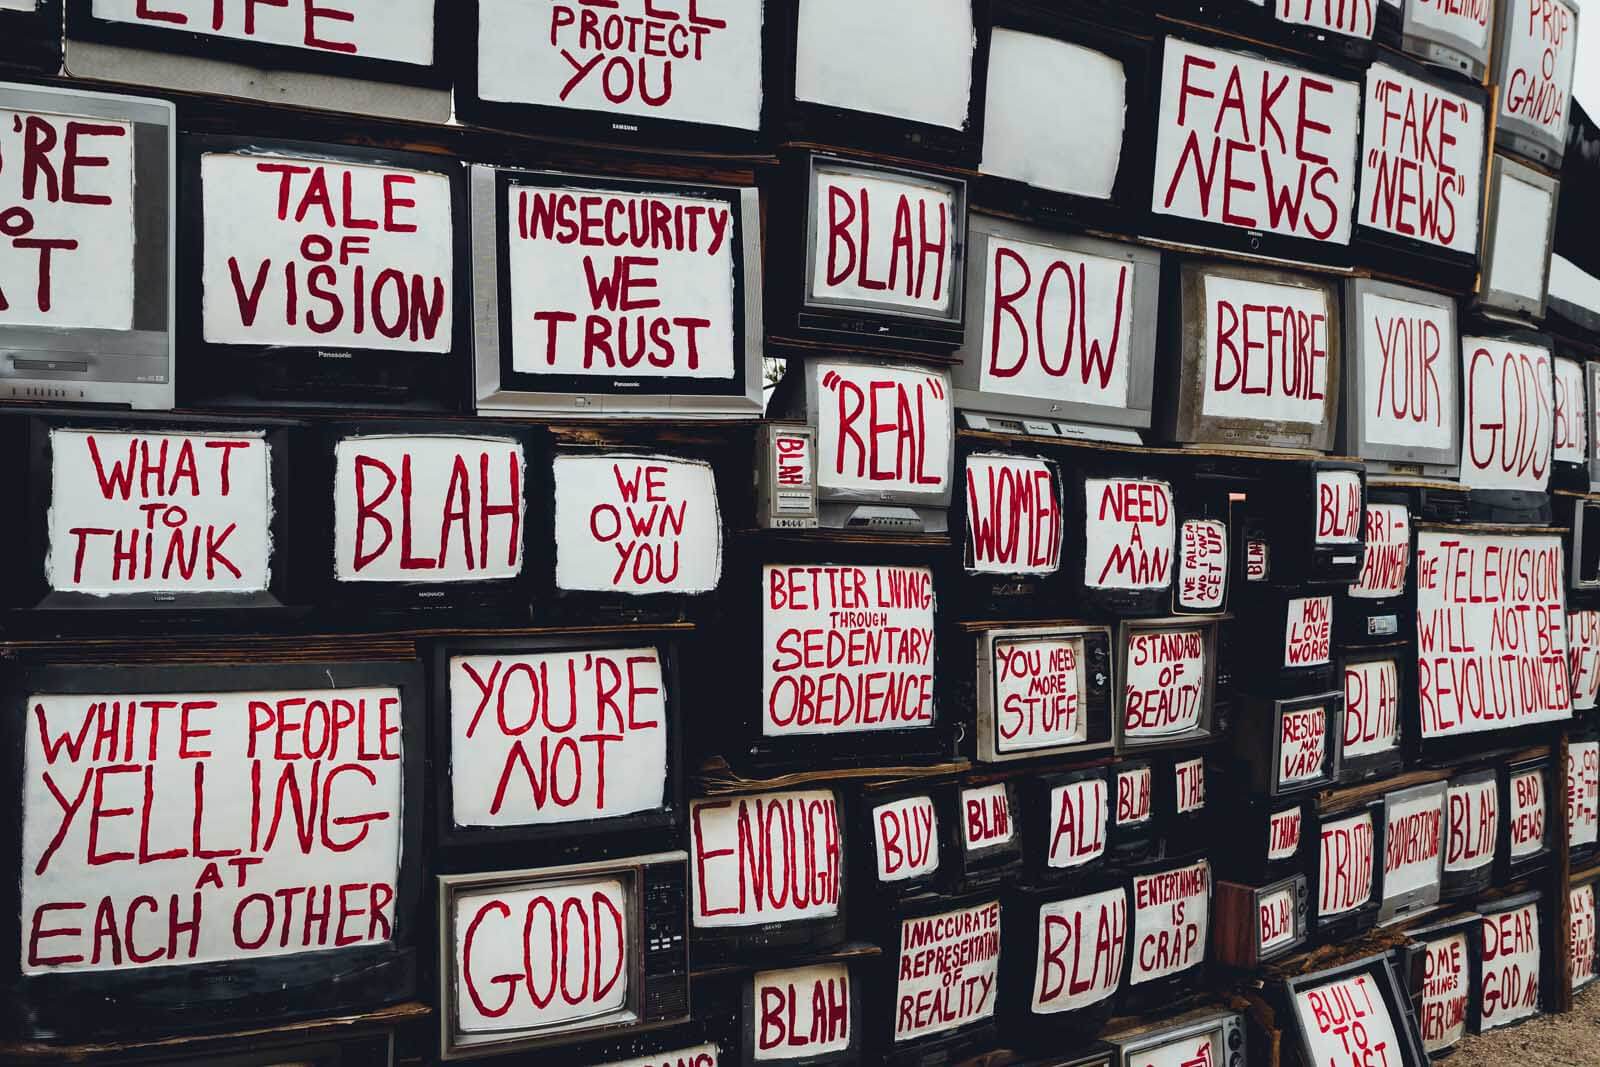 LIFE
PROTECT
YOU
SAMSUNG
FAKE
NEWS
SAMSUNG
"FAKE"
"NEWS"
PROP
O'
GANDA
'RE
TALE
OF
VISION
Panasonic
INSECURITY
WE
TRUST
Panasonic
BLAH
BOW
BEFORE
YOUR
GODS
WHAT
TO
THINK
TOSHIBA
BLAH
MAGNAVOX
WE
OWN
YOU
BLAH
"REAL"
WOMEN
NEED
A
MAN
I'VE FALLEN
AND I CAN'T
GET UP
BLAH
BLAH
HOW
LOVE
WORKS
THE TELEVISION
WILL NOT BE
REVOLUTIONIZED
BETTER LIVING
THROUGH
SEDENTARY
OBEDIENCE
YOU NEED
MORE
STUFF
"STANDARD
OF
"BEAUTY"
RESULTS
MAY
VARY
BLAH
WHITE PEOPLE
YELLING
AT
EACH OTHER
YOU'RE
NOT
GOOD
ENOUGH
BUY
BLAH
ALL
BLAH
THE
THINGS
TRUTH
ADVERTISING
BLAH
BAD
NEWS
BLAH
INACCURATE
REPRESENTATION
OF
REALITY
BLAH
ENTERTAINMENT
IS
CRAP
BLAH
DEAR
GOD NO
BUILT
TO
LAST